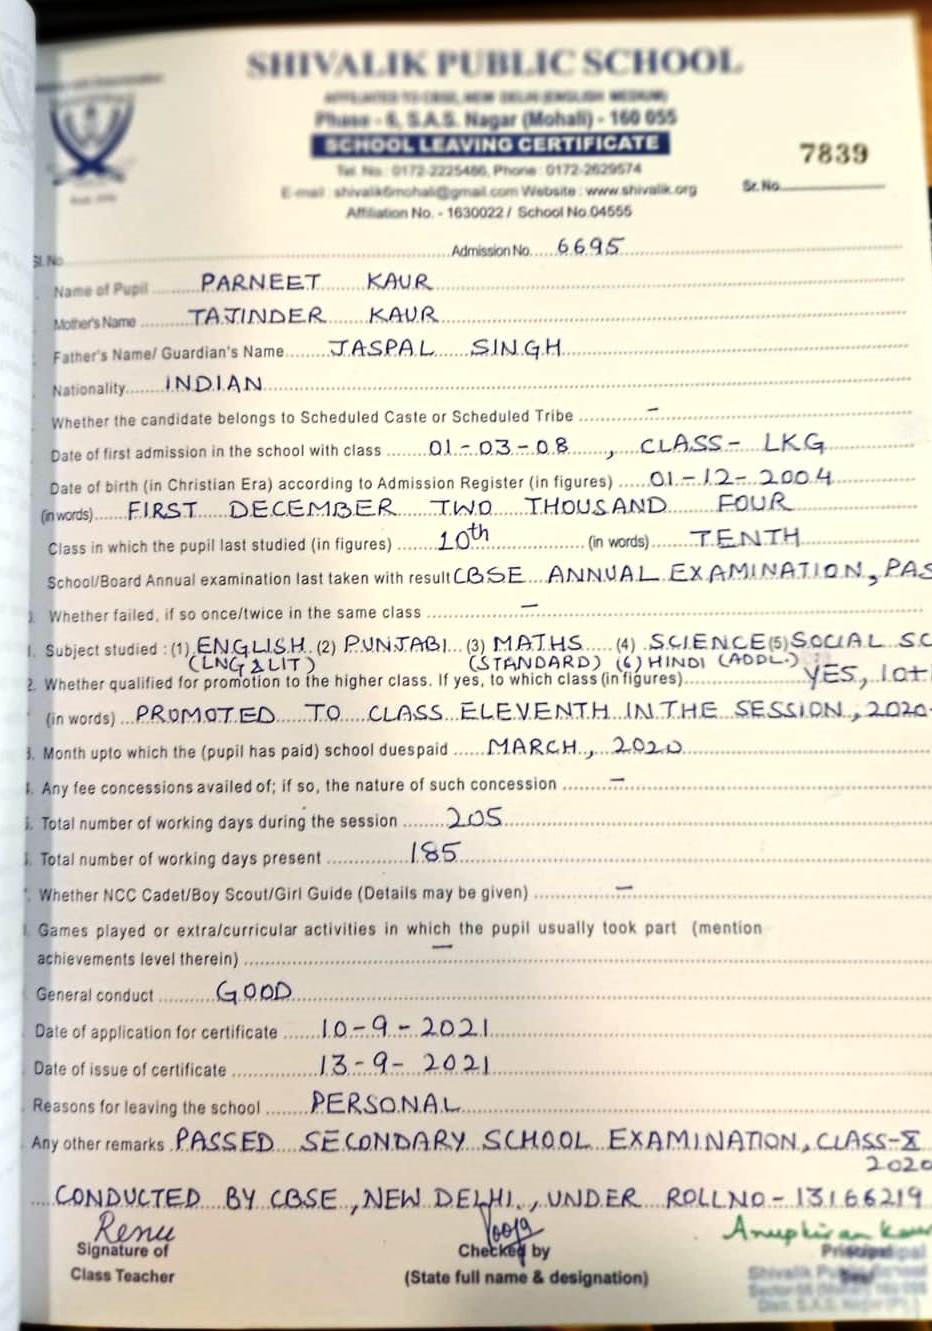 SHIVALIK PUBLIC SCHOOL
AFFILIATED TO CBSE, NEW DELHI (ENGLISH MEDIUM)
Phase - 6, S.A.S. Nagar (Mohali) - 160 055
SCHOOL LEAVING CERTIFICATE
7839
Tel. No : 0172-2225486, Phone : 0172-2629574
Sr. No.
E-mail : shivalik6mohali@gmail.com Website : www.shivalik.org
Affiliation No. - 1630022 / School No.04555
Sl. No. Admission No. 6695
Name of Pupil PARNEET KAUR
Mother's Name TAJINDER KAUR
Father's Name/ Guardian's Name JASPAL SINGH
Nationality INDIAN
Whether the candidate belongs to Scheduled Caste or Scheduled Tribe –
Date of first admission in the school with class 01-03-08, CLASS- LKG
Date of birth (in Christian Era) according to Admission Register (in figures) 01-12-2004
(in words) FIRST DECEMBER TWO THOUSAND FOUR
Class in which the pupil last studied (in figures) 10th (in words) TENTH
School/Board Annual examination last taken with result CBSE ANNUAL EXAMINATION, PAS
Whether failed, if so once/twice in the same class –
1. Subject studied : (1) ENGLISH (2) PUNJABI (3) MATHS (4) SCIENCE (5) SOCIAL SC
(LNG & LIT) (STANDARD) (6) HINDI (ADDL.)
2. Whether qualified for promotion to the higher class. If yes, to which class (in figures) YES, 10+1
(in words) PROMOTED TO CLASS ELEVENTH IN THE SESSION, 2020-
3. Month upto which the (pupil has paid) school duespaid MARCH, 2020
Any fee concessions availed of; if so, the nature of such concession –
Total number of working days during the session 205
Total number of working days present 185
Whether NCC Cadet/Boy Scout/Girl Guide (Details may be given) –
Games played or extra/curricular activities in which the pupil usually took part (mention
achievements level therein) –
General conduct GOOD
Date of application for certificate 10-9-2021
Date of issue of certificate 13-9-2021
Reasons for leaving the school PERSONAL
Any other remarks PASSED SECONDARY SCHOOL EXAMINATION, CLASS-X
2020
CONDUCTED BY CBSE, NEW DELHI, UNDER ROLLNO-13166219
Renu Pooja Anupkiran Kaur
Signature of Checked by Principal
Class Teacher (State full name & designation)
Shivalik Public School